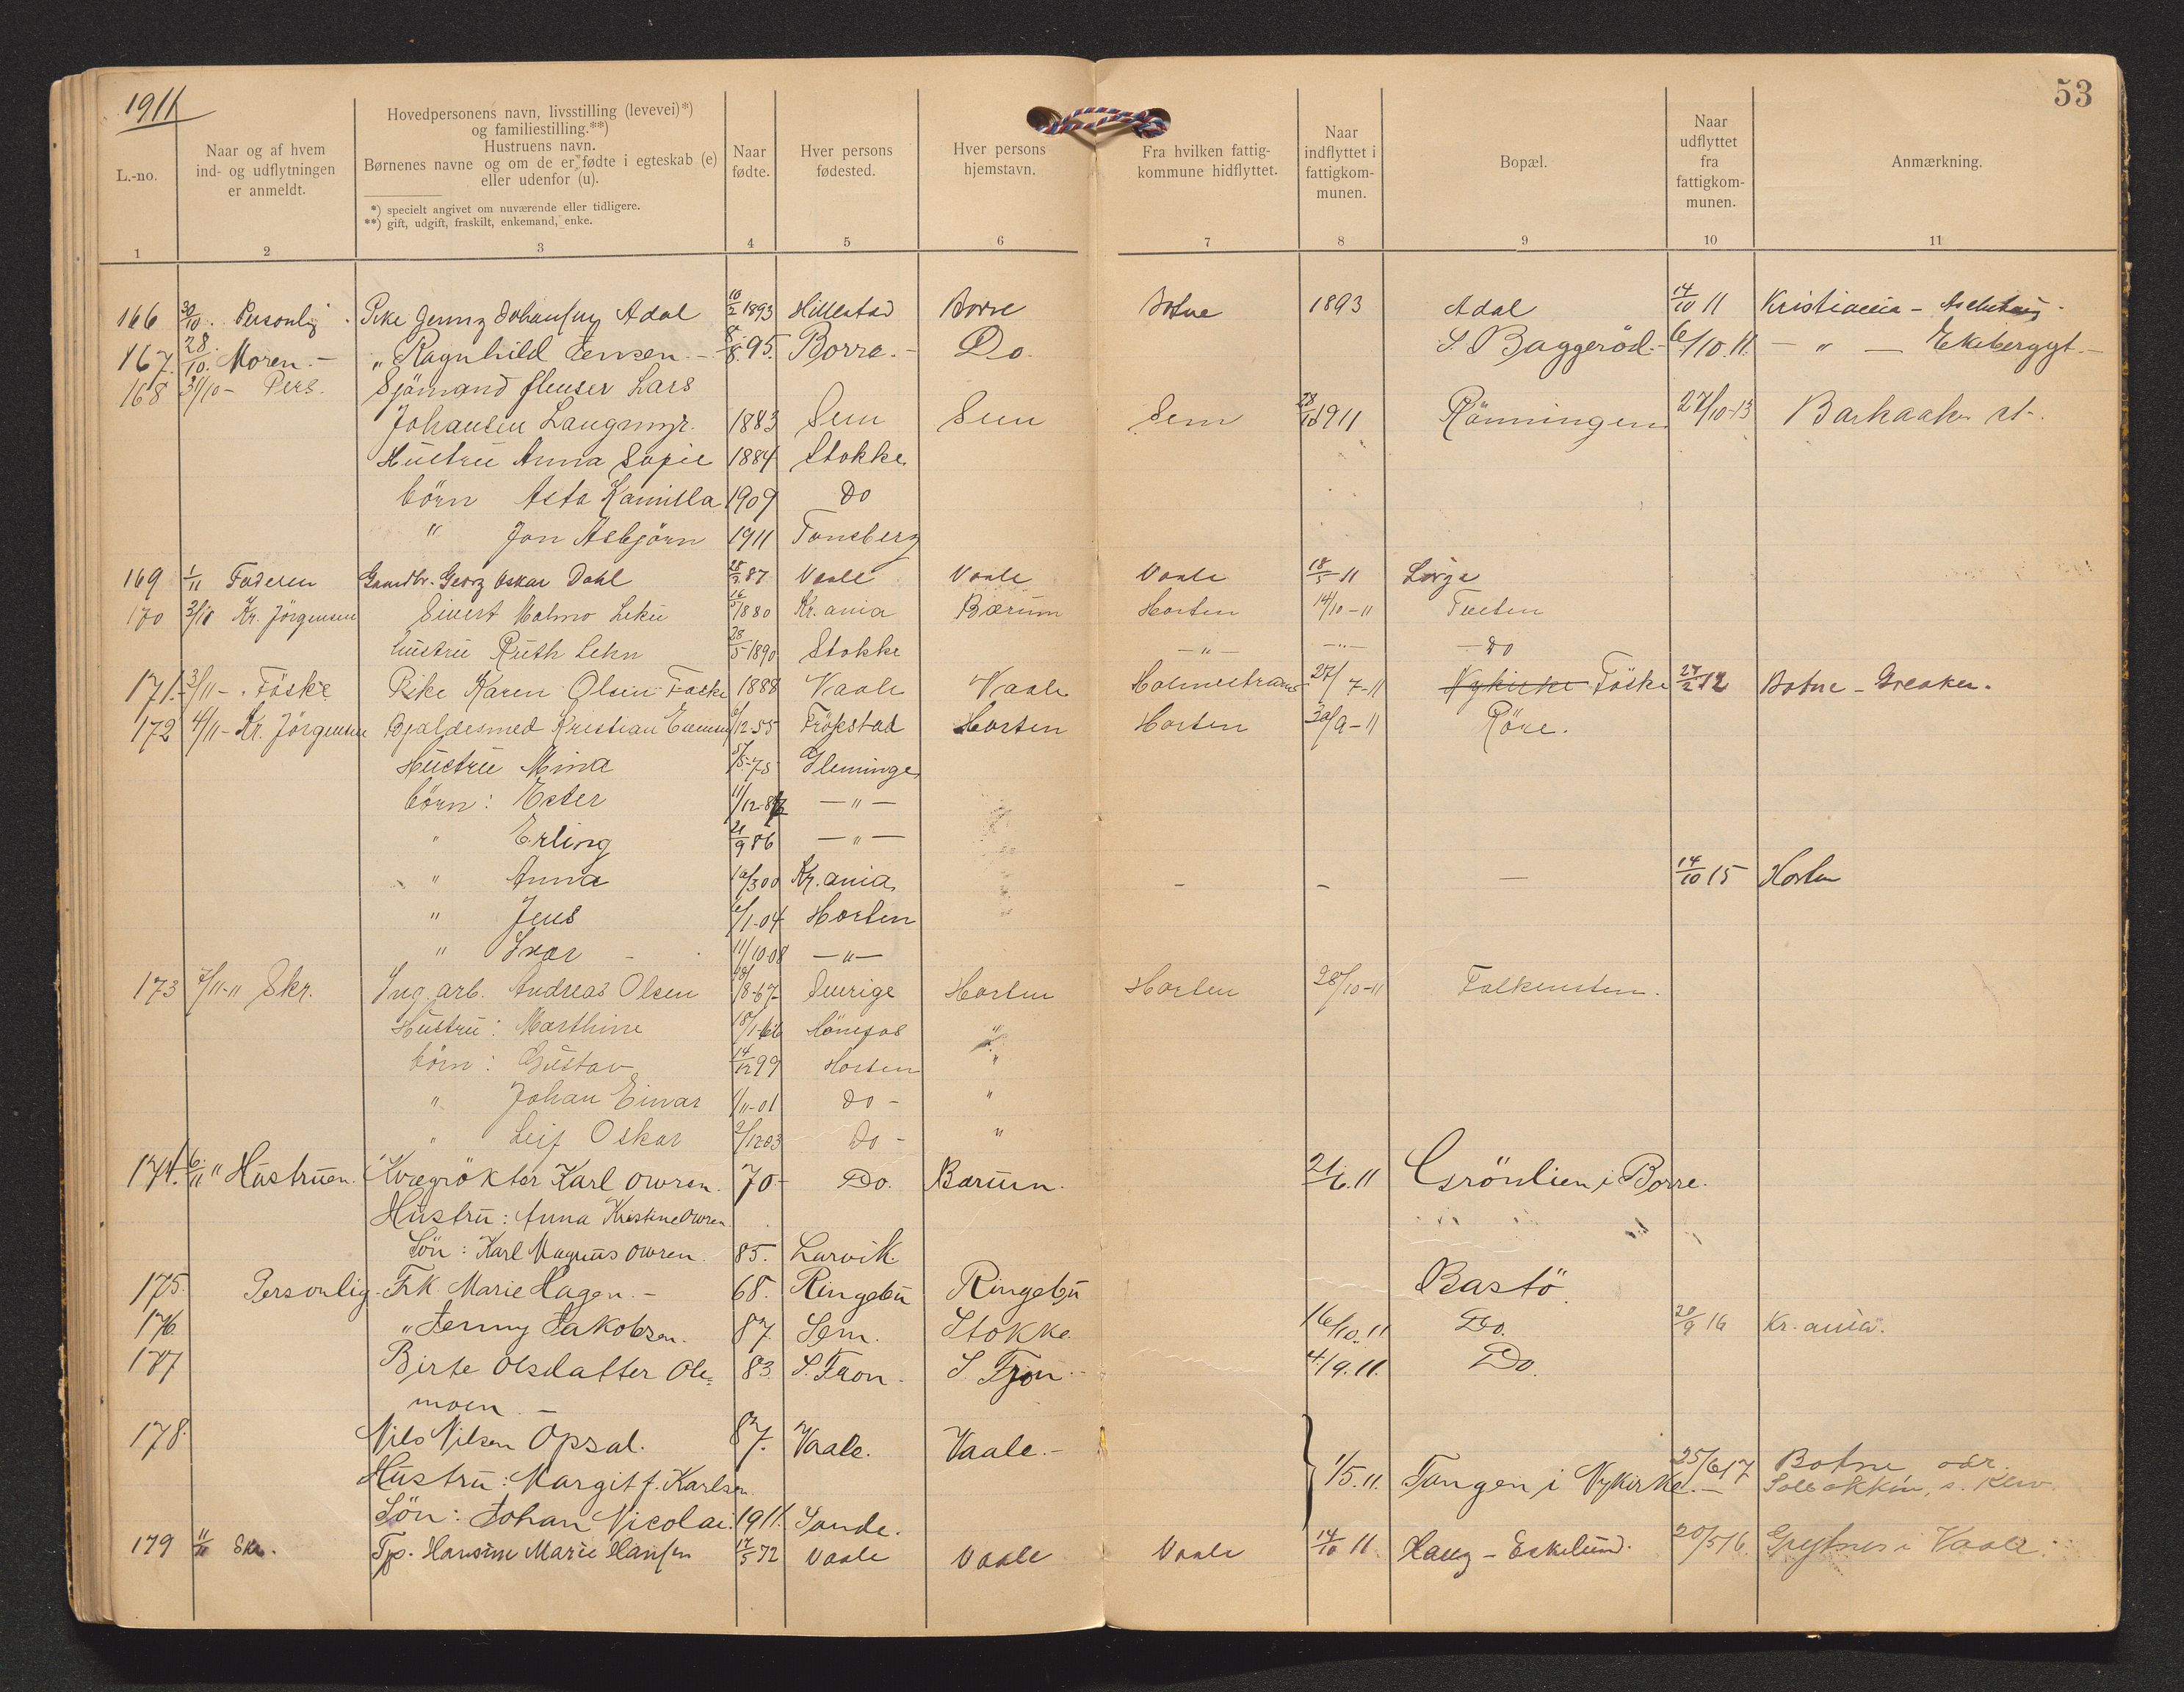 1911
53
L.-no.
Naar og af hvem
ind- og udflytningen
er anmeldt.
Hovedpersonens navn, livsstilling (levevei)*)
og familiestilling.**)
Hustruens navn.
Børnenes navne og om de er fødte i egteskab (e)
eller udenfor (u).
*) specielt angivet om nuværende eller tidligere.
**) gift, ugift, fraskilt, enkemand, enke.
Naar
fødte.
Hver persons
fødested.
Hver persons
hjemstavn.
Fra hvilken fattig-
kommune hidflyttet.
Naar
indflyttet i
fattigkom-
munen.
Bopæl.
Naar
udflyttet
fra
fattigkom-
munen.
Anmærkning.
1 2 3 4 5 6 7 8 9 10 11
166 30/10. Personlig. Pike Jenny Johansen Adal 10/2 1893 Hillestad Borre Botne 1893 Adal 14/10 11 Kristiania -
167. 28/10. Moren.- „ Ragnhild Jensen.- 8/8. 95. Borre.- Do. S. Baggeröd.- 6/10.11. - „ - Ekeberggt.-
168 31/10- Pers. Sjömand Lars
Johansen Langmyr. 1883 Sem Sem Sem 28/10 1911 Rönningen 27/10-13 Barkaaker st.
Hustru Anna Sofie 1884 Stokke
börn Asta Kamilla 1909 Do
" Jon Asbjörn 1911 Tonsberg
169 1/11 Faderen Gaardbr. Georg Oskar Dahl 87 Vaale Vaale Vaale 18/5 11
170 Kr. Jörgensen Sivert Malmo 1880 Kr.ania Bærum Horten 14/10-11
hustru Ruth 28/5 1890 Stokke - " - - " - - Do
171. 3/11-. Föske Pike Karen Olsen Föske 1888 Vaale Vaale Holmestrand 27/7-11 Nykirke Föske 27/2 12 Botne - Greaker.
172 4/11- Kr. Jörgensen Gjældesmed Kristian 6/12-55 Horten Horten 30/9-11 Röre.
Hustru Mina 5/8-75 Glemminge
börn: Ester 11/12- - " -
" Erling 21/9 86 - " -
" Anna 10/3 00 Kr.ania - - - 14/10 15 Horten
" Jens 6/1-04 Horten
" Ivar 11/10-08 - " -
173 7/11-11 Skr. Ing.arb. Andreas Olsen /8-67 Sverige Horten Horten 28/10-11 Falkensten.
Hustru: Marthine 18/1-66 Hönefos "
börn: Gustav 14/12 99 Horten "
" Johan Einar 1/11-01 Do - "
" Leif Oskar 2/12 03 Do - "
174. 6/11 " Hustruen. Kvægrökter Karl Owren. 70- Do. Bærum. 21/6.11 Grönlien i Borre.
Hustru: Anna Kristine Owren
Sön: Karl Magnus Owren. 85. Larvik.
175. Personlig. Frk. Marie Hagen.- 68. Ringebu Ringebu Bastö.
176. „ Jenny Jakobsen. 87. Sem. Stokke. 16/10.11 Do. 20/9 16 Kr.ania.
187 Birte Olsdatter Ole= 83. S. Fron. S. Fron.- 4/9.11. Do.
moen. -
178. Nils Nilsen Opsal. 87. Vaale. Vaale.-
Hustru: Margit f. Karlsen. 1/5.11. Tangen i Nykirke.- 25/6 17 Botne
Sön: Johan Nicolai. 1911. Sande.
179 11/11 Skr. Tjp. Hansine Marie Hansen 17/5 72 Vaale Vaale Vaale 14/10 11. Haug - Eskelund. 20/5 16. Grytnes i Vaale.